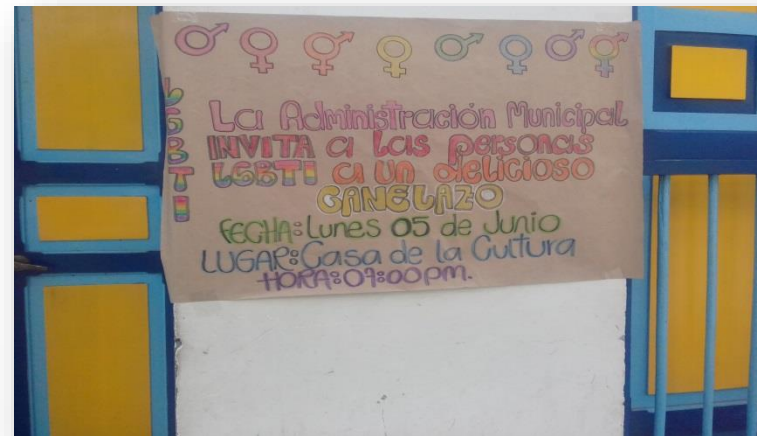 LGBTI
La Administración Municipal
INVITA a las personas
LGBTI a un delicioso
CANELAZO
FECHA: Lunes 05 de Junio
LUGAR: Casa de la Cultura
HORA: 07:00 pm.